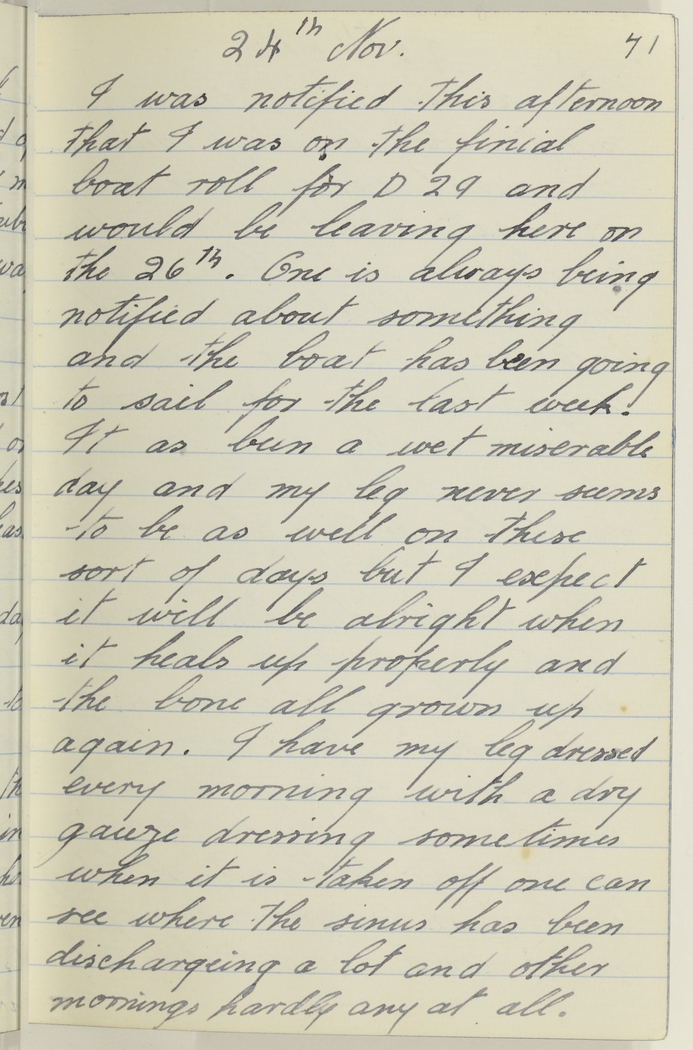 24th Nov. 71
I was notified this afternoon
that I was on the finial
boat roll for D 29 and
would be leaving here on
the 26th. One is always being
notified about something
and the boat has been going
to sail for the last week.
It as been a wet miserable
day and my leg never seems
to be as well on these
sort of days but I expect
it will be alright when
it heals up properly and
the bone all grown up
again. I have my leg dressed
every morning with a dry
gauze dressing sometimes
when it is taken off one can
see where the sinus has been
dischargeing a lot and other
mornings hardly any at all.